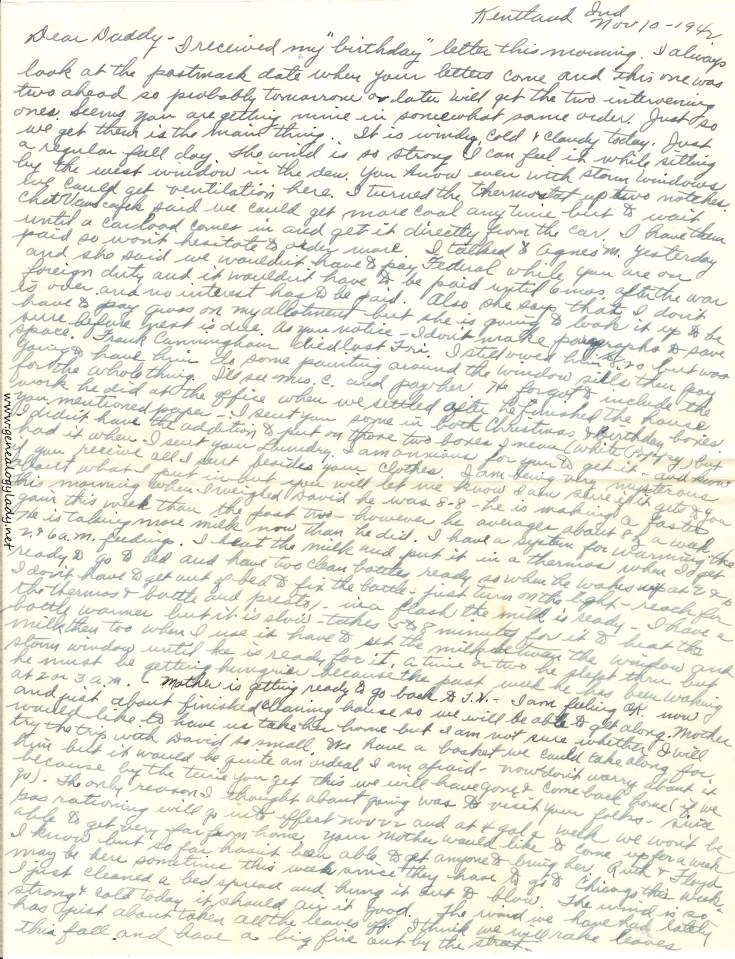 Kentland Ind
Nov 10-1942
Dear Daddy- I received my "birthday" letter this morning. I always
look at the postmark date when your letters come and this one was
two ahead so probably tomorrow or later will get the two intervening
ones. Seems you are getting mine in somewhat same order. Just so
we get them is the main thing. It is windy, cold & cloudy today. Just
a regular fall day. The wind is so strong I can feel it while sitting
by the west window in the den. You know even with storm windows
we could get ventilation here. I turned the thermostat up two notches.
Chet said we could get more coal any time but to wait
until a carload comes in and get it directly from the car. I have them
paid so won't hesitate to order more. I talked to Agnes M. yesterday
and she said we wouldn't have to pay Federal while you are on
foreign duty and it wouldn't have to be paid until 6 mos. after the war
is over and no interest has to be paid. Also she says that I don't
have to pay gross on my allotment but she is going to look it up to be
sure before next is due. As you notice - I don't make paragraphs to save
space. Frank Cunningham died last Fri. I still owed him but was
going to have him do some painting around the window sills then pay
for the whole thing. I'll see Mrs. C. and pay her. He forgot to include the
work he did at the office when we settled after he finished the house
you mentioned paper - I sent you some in both Christmas & Birthday boxes.
I didn't have the addition to put on those two boxes I mean (White Pigeon) but
had it when I sent your laundry. I am anxious for you to get it - and know
if you receive all I sent besides your clothes. I am being very mysterious
about what I put in but you will let me know I am sure if it gets to you
this morning when I weighed David he was 8-8 - he is making a faster
gain this week than the past two - however he averages about 8 oz a week.
He is taking more milk now than he did. I have a system for warming the
2 & 6 a.m. feedings. I heat the milk and put it in a thermos when I get
ready to go to bed and have two clean bottles ready so when he wakes up at 2 & 6
I don't have to get out of bed to fix the bottle - just turn on the light - reach for
the thermos & bottle and presto, - in a flash the milk is ready - I have a
bottle warmer but it is slow - takes 5 to 8 minutes for it to heat the
milk then too when I use it have to set the milk between the window and
storm window until he is ready for it. A time or two he slept thru but
he must be getting hungrier because the past week he has been waking
at 2 or 3 a.m. - Mother is getting ready to go back to - I am feeling OK now
and just about finished cleaning house so we will be able to get along. Mother
would like to have us take her home but I am not sure whether I will
try the trip with David so small. We have a basket we could take along for
him but it would be quite an ordeal I am afraid - now don't worry about it
because by the time you get this we will have gone & come back home (if we
go). The only reason I thought about going was to visit your folks - since
gas rationing will go into effect Nov 22 and at 4 gal a week we won't be
able to get very far from home. Your mother would like to come up for a week
I know but so far hasn't been able to get anyone to bring her. Ruth & Floyd
may be here sometime this week since they have to go to Chicago this week.
I just cleaned a bed spread and hung it out to blow. The wind is so
strong & cold today it should air it good. The wind we have had lately
has just about taken all the leaves off. I think we will rake leaves
this fall and have a big fire out by the street.
www.genealogylady.net